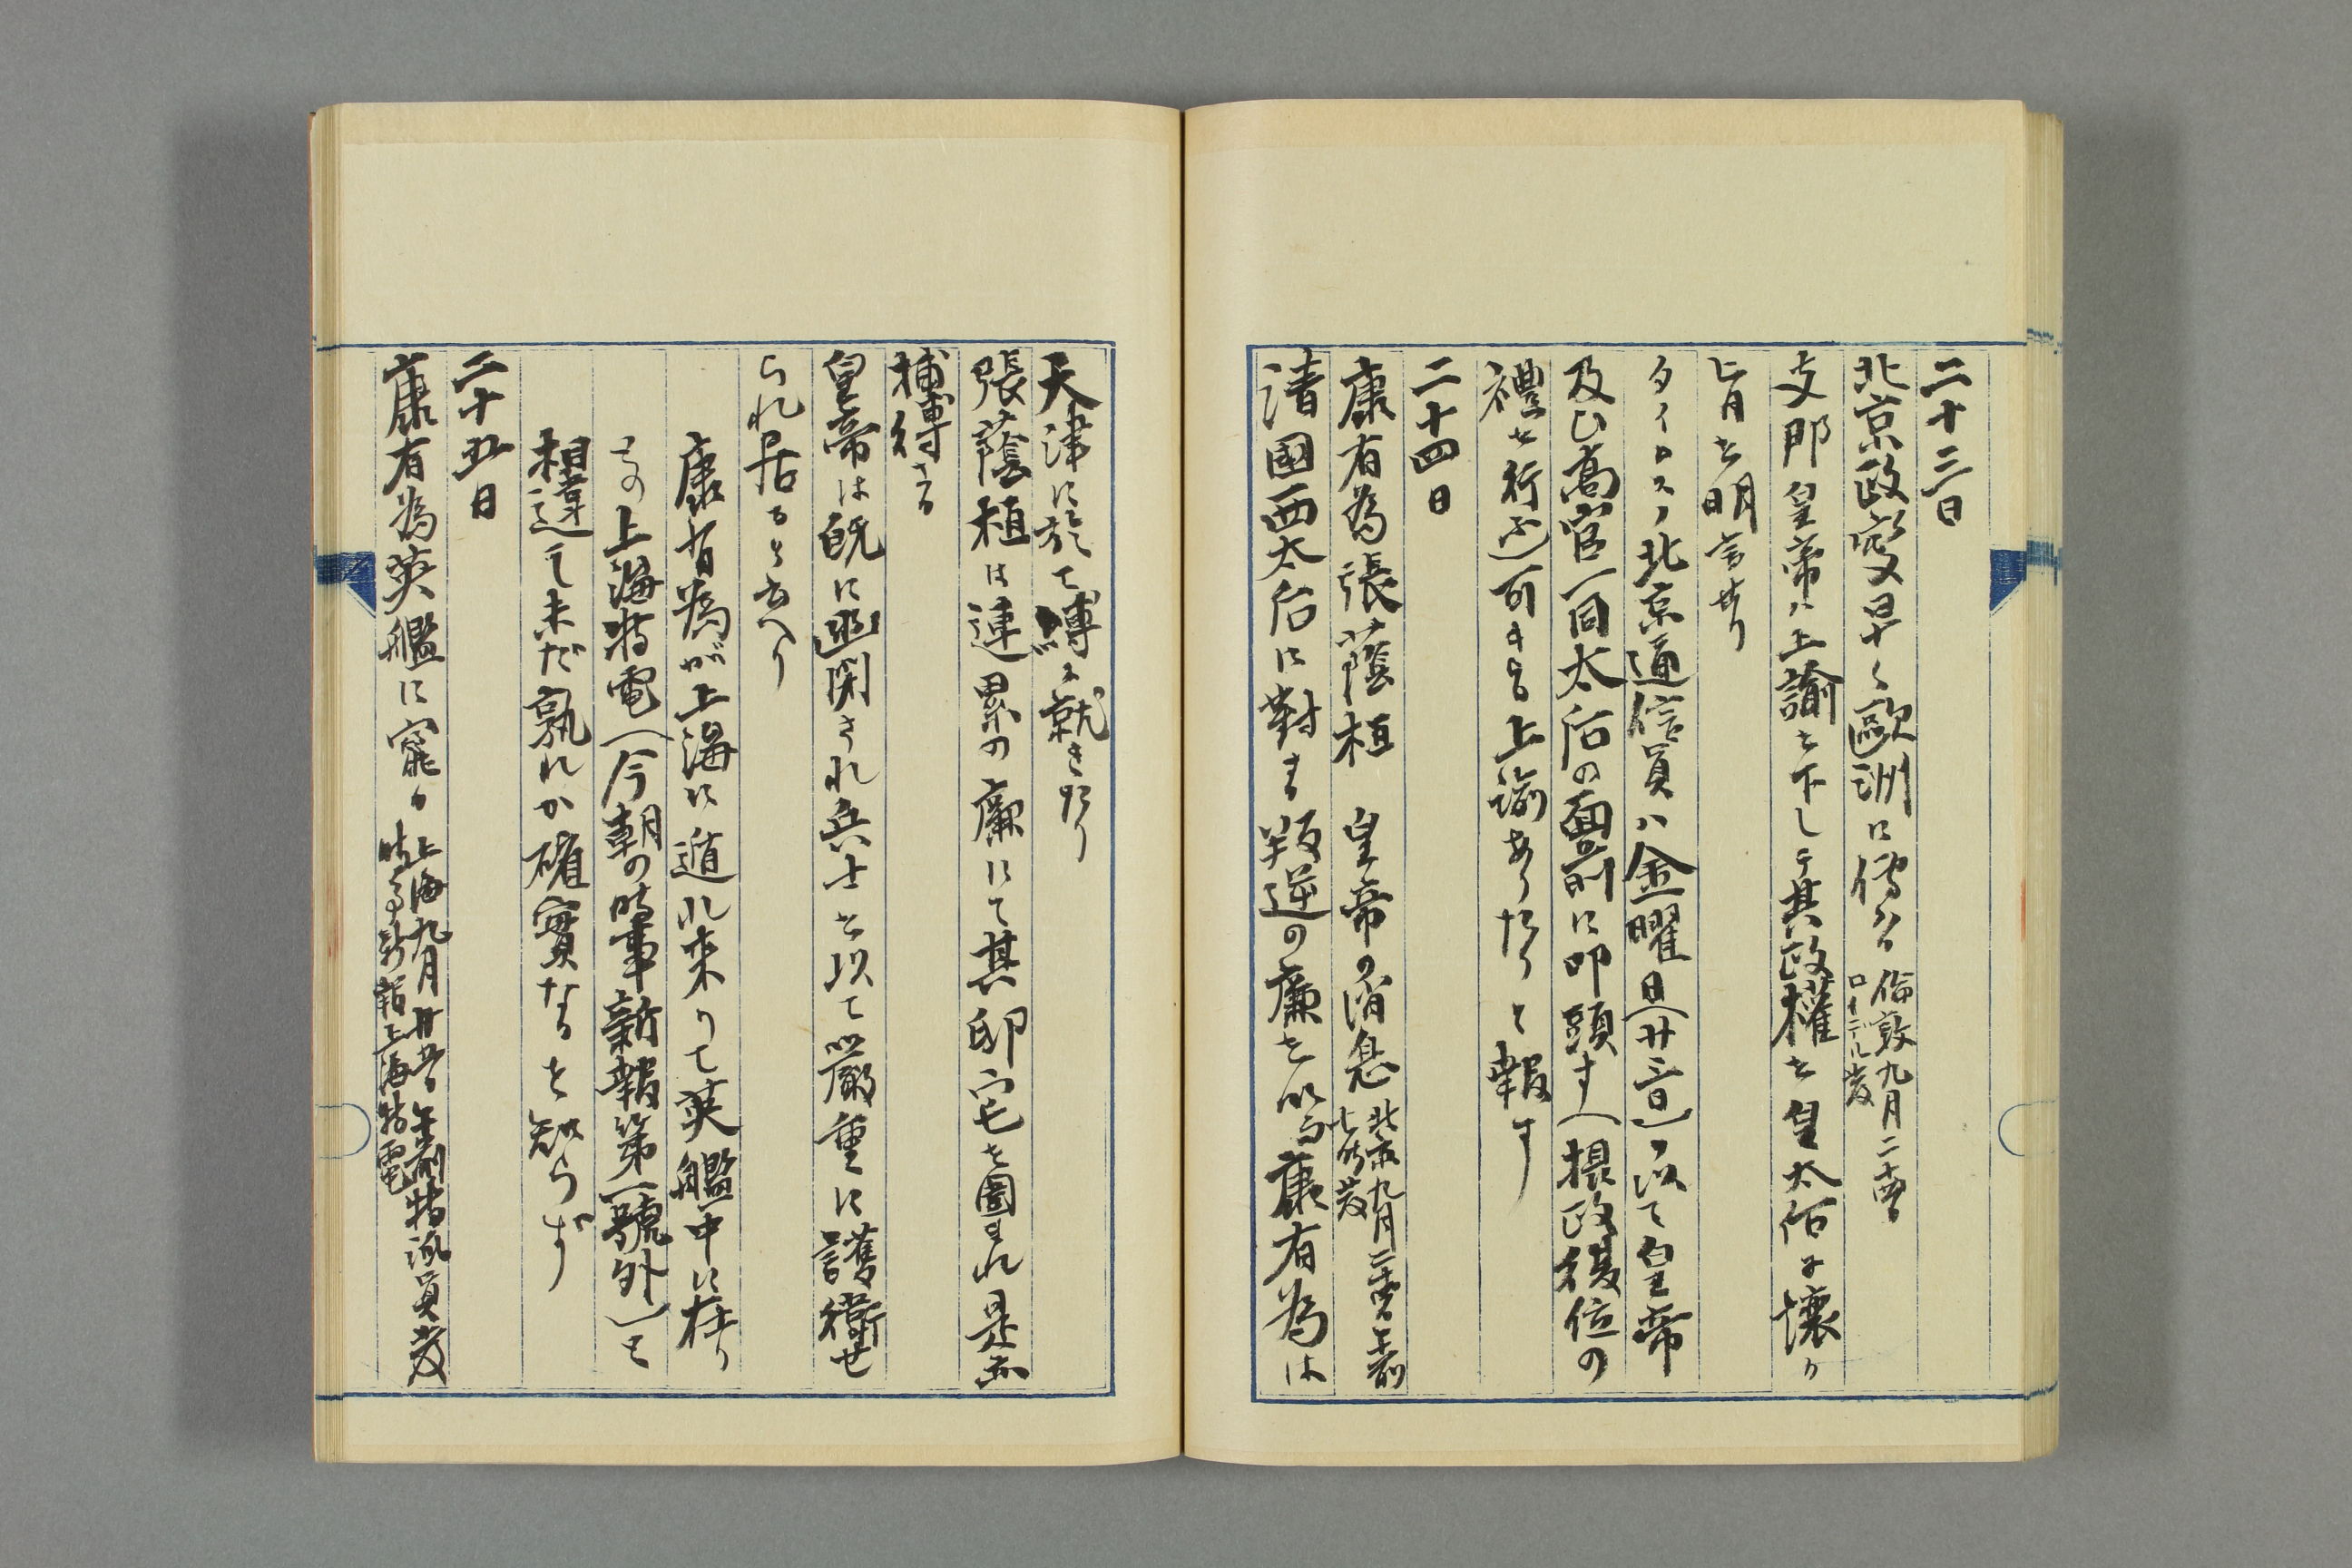 二十三日
北京政變早く歐洲に傳はる 倫敦九月二十四日
ロイテル發
支那皇帝は上諭を下して其政權を皇太后に讓り
し旨を明言せり
タイムスノ北京通信員ハ金曜日(廿三日)を以て皇帝
及ひ高官一同太后の面前に叩頭す(攝政復位の
禮を行ふ)可き旨上諭ありたりと報す
二十四日
康有為張蔭桓 皇帝の消息 北京九月二十四日午前
七時發
清國西太后に對する叛逆の廉を以て康有為は
天津に於て縛に就きたり
張蔭桓は連累の廉にて其邸宅を圍まれ是亦
捕縛さる
皇帝は既に幽閉され兵士を以て嚴重に護衛せ
られ居ると云へり
康有為が上海に遁れ来りて英艦中に在り
との上海特電(今朝の時事新報第一號外)と
相違して未だ孰れか確實なるを知らず
二十五日
康有為英艦に竄る 上海九月廿四日午前特派員發
時事新報上海特電